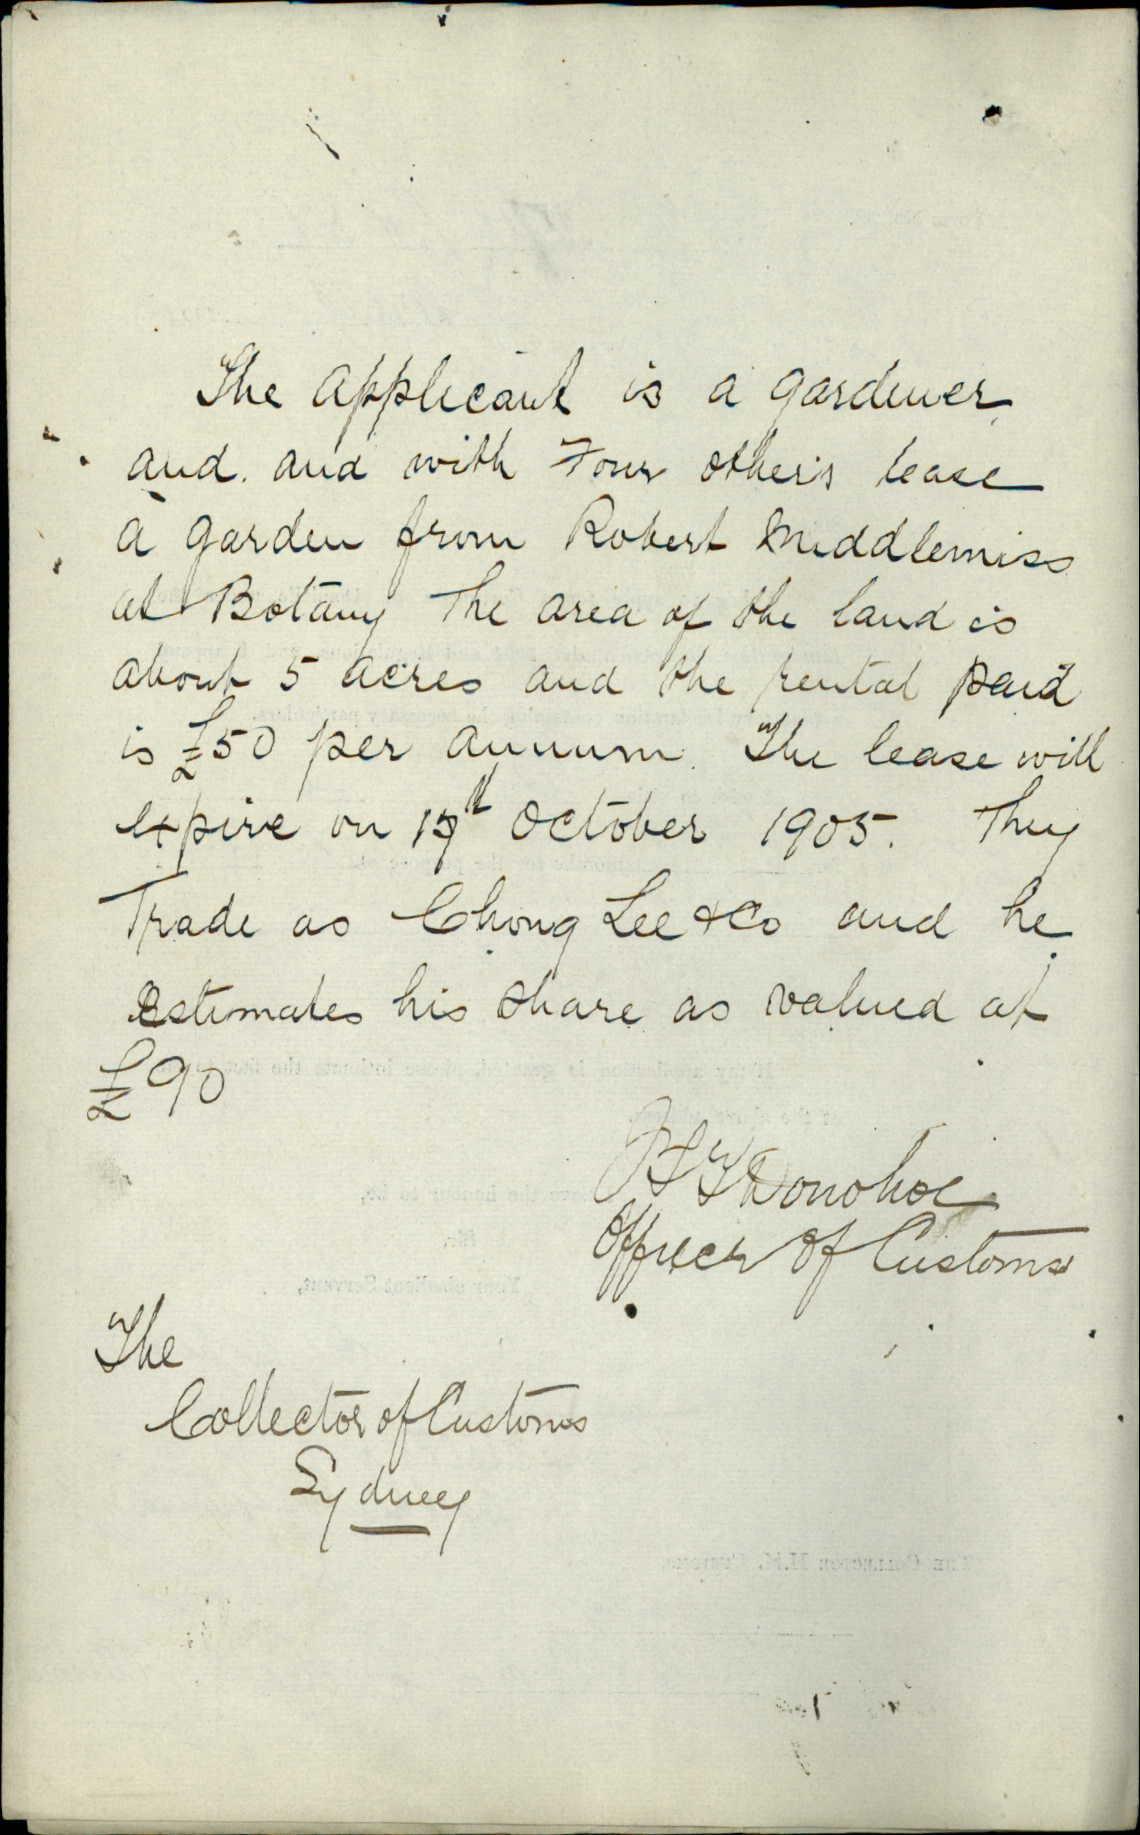 The applicant is a gardener
and. and with Four others lease
a garden from Robert Middlemiss
at Botany The area of the land is
about 5 acres and the rental paid
is £50 per annum. The lease will
expire on 17th October 1905. They
Trade as Chong Lee & Co and he
estimates his share as valued at
£90
Donohoe
Officer of Customs
The
Collector of Customs
Sydney